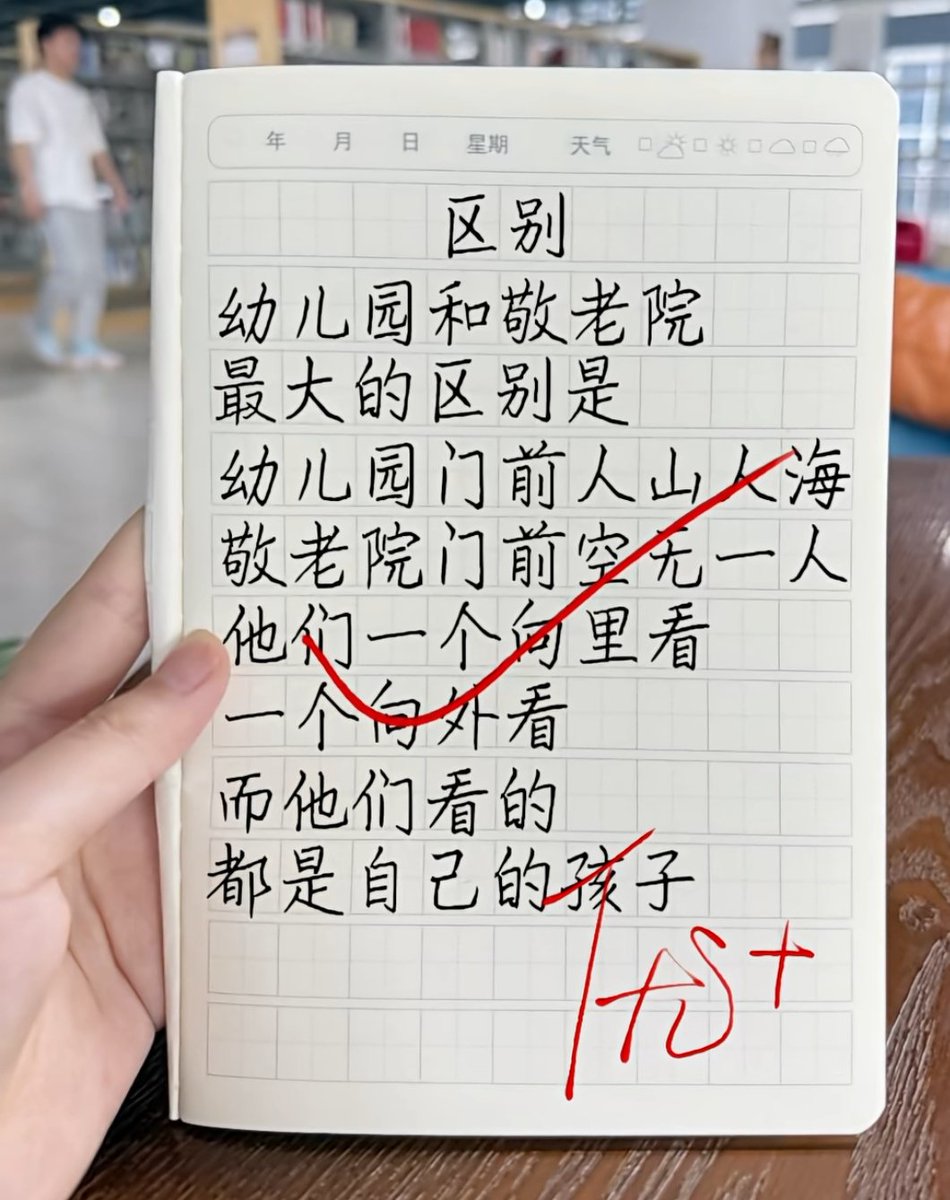 年 月 日 星期 天气
区别
幼儿园和敬老院
最大的区别是
幼儿园门前人山人海
敬老院门前空无一人
他们一个向里看
一个向外看
而他们看的
都是自己的孩子
优+